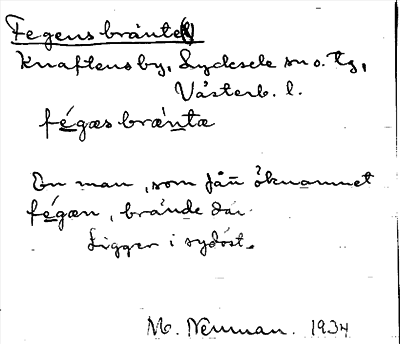 Fegensbränte(l)
Knaftensby, Lycksele sn o. tg,
Västerb. l.
fégæsbrænta
En man, som fått öknamnet
fégæn, brände där.
Ligger i sydöst.
M. Nenman. 1934